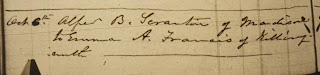 Oct 6th Alfred B. Scranton of Madison
to Emma A. Francis of Killing-
worth